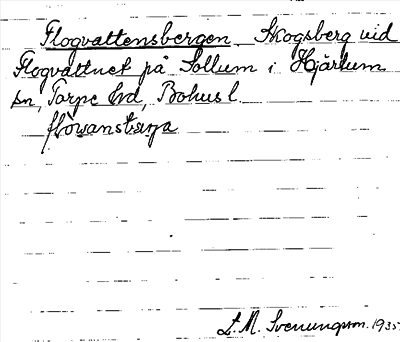 Flogvattensbergen. Skogsberg vid
Flogvattnet på Sollum i Hjärtum
sn, Torpe hd, Bohusl.
L. M. Svenungsson. 1935